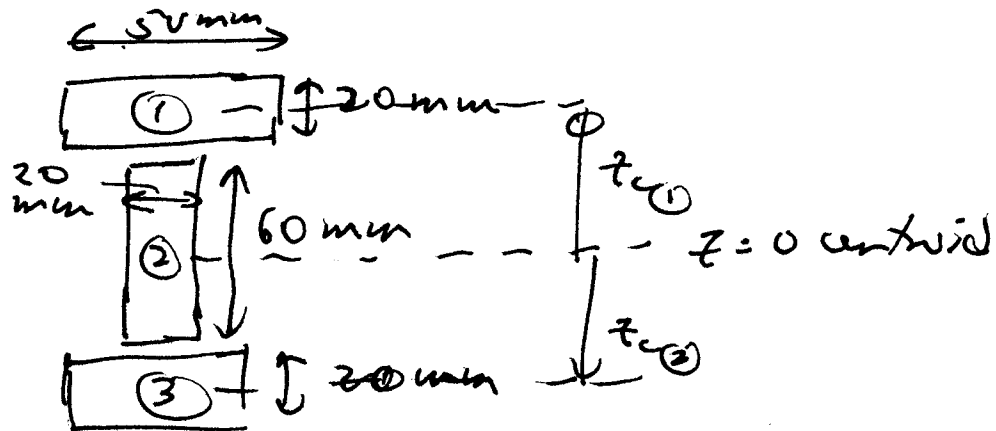 50 mm
① 20 mm
20
mm
z_c①
② 60 mm
z = 0 centroid
z_c②
③ 20 mm